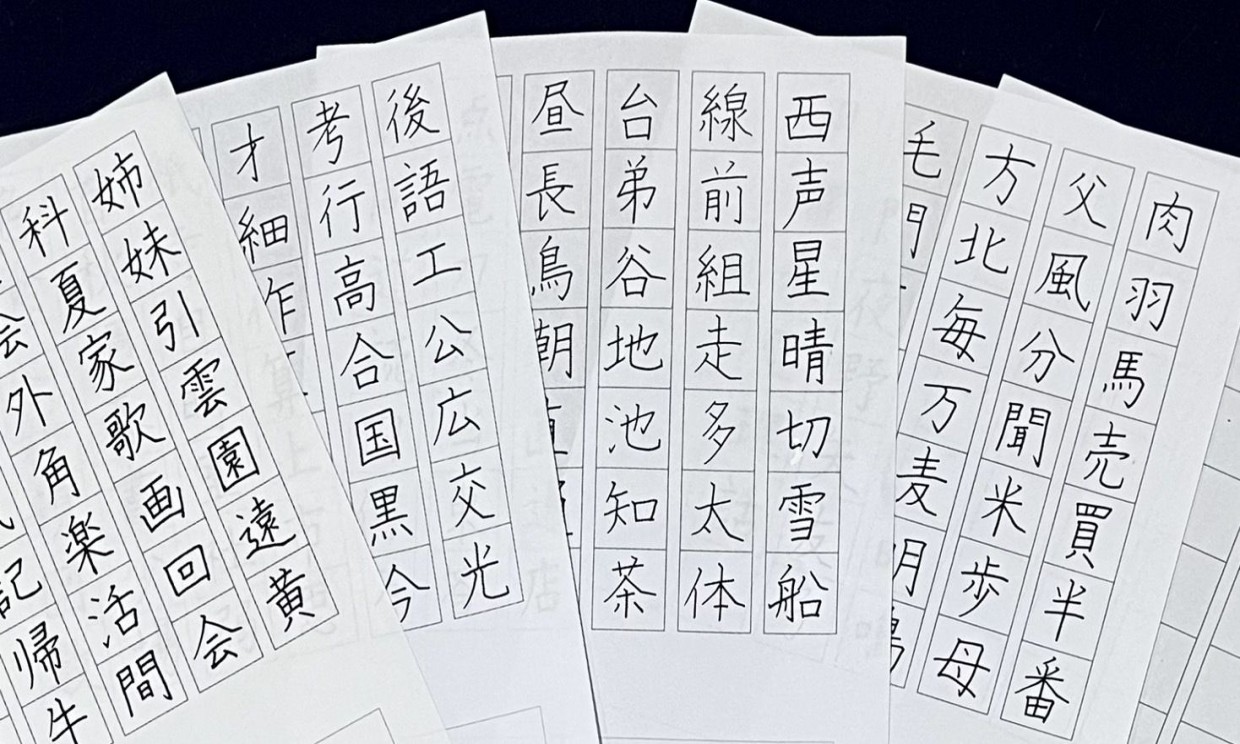 肉羽馬売買半番
父風分聞米歩母
方北毎万麦明
毛門
西声星晴切雪船
線前組走多太体
台弟谷地池知茶
昼長鳥朝直
後語工公広交光
考行高合国黒今
才細作
姉妹引雲園遠黄
科夏家歌画回会
絵外角楽活間
記帰牛